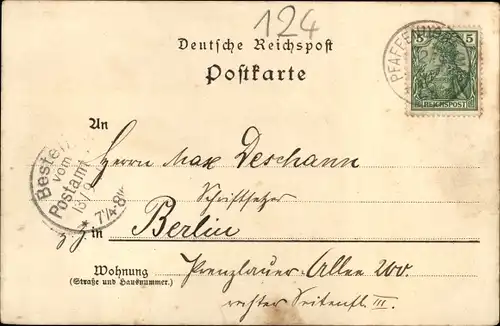 124
Deutsche Reichspost
Postkarte
5 5
REICHSPOST
An
Herrn Max Deschann
Schriftsetzer
z. Z. in Berlin
Bestellt
vom
Postamt
7¼-8½
Wohnung
(Straße und Hausnummer.)
Prenzlauer-Allee 200.
rechter Seitenfl. III.